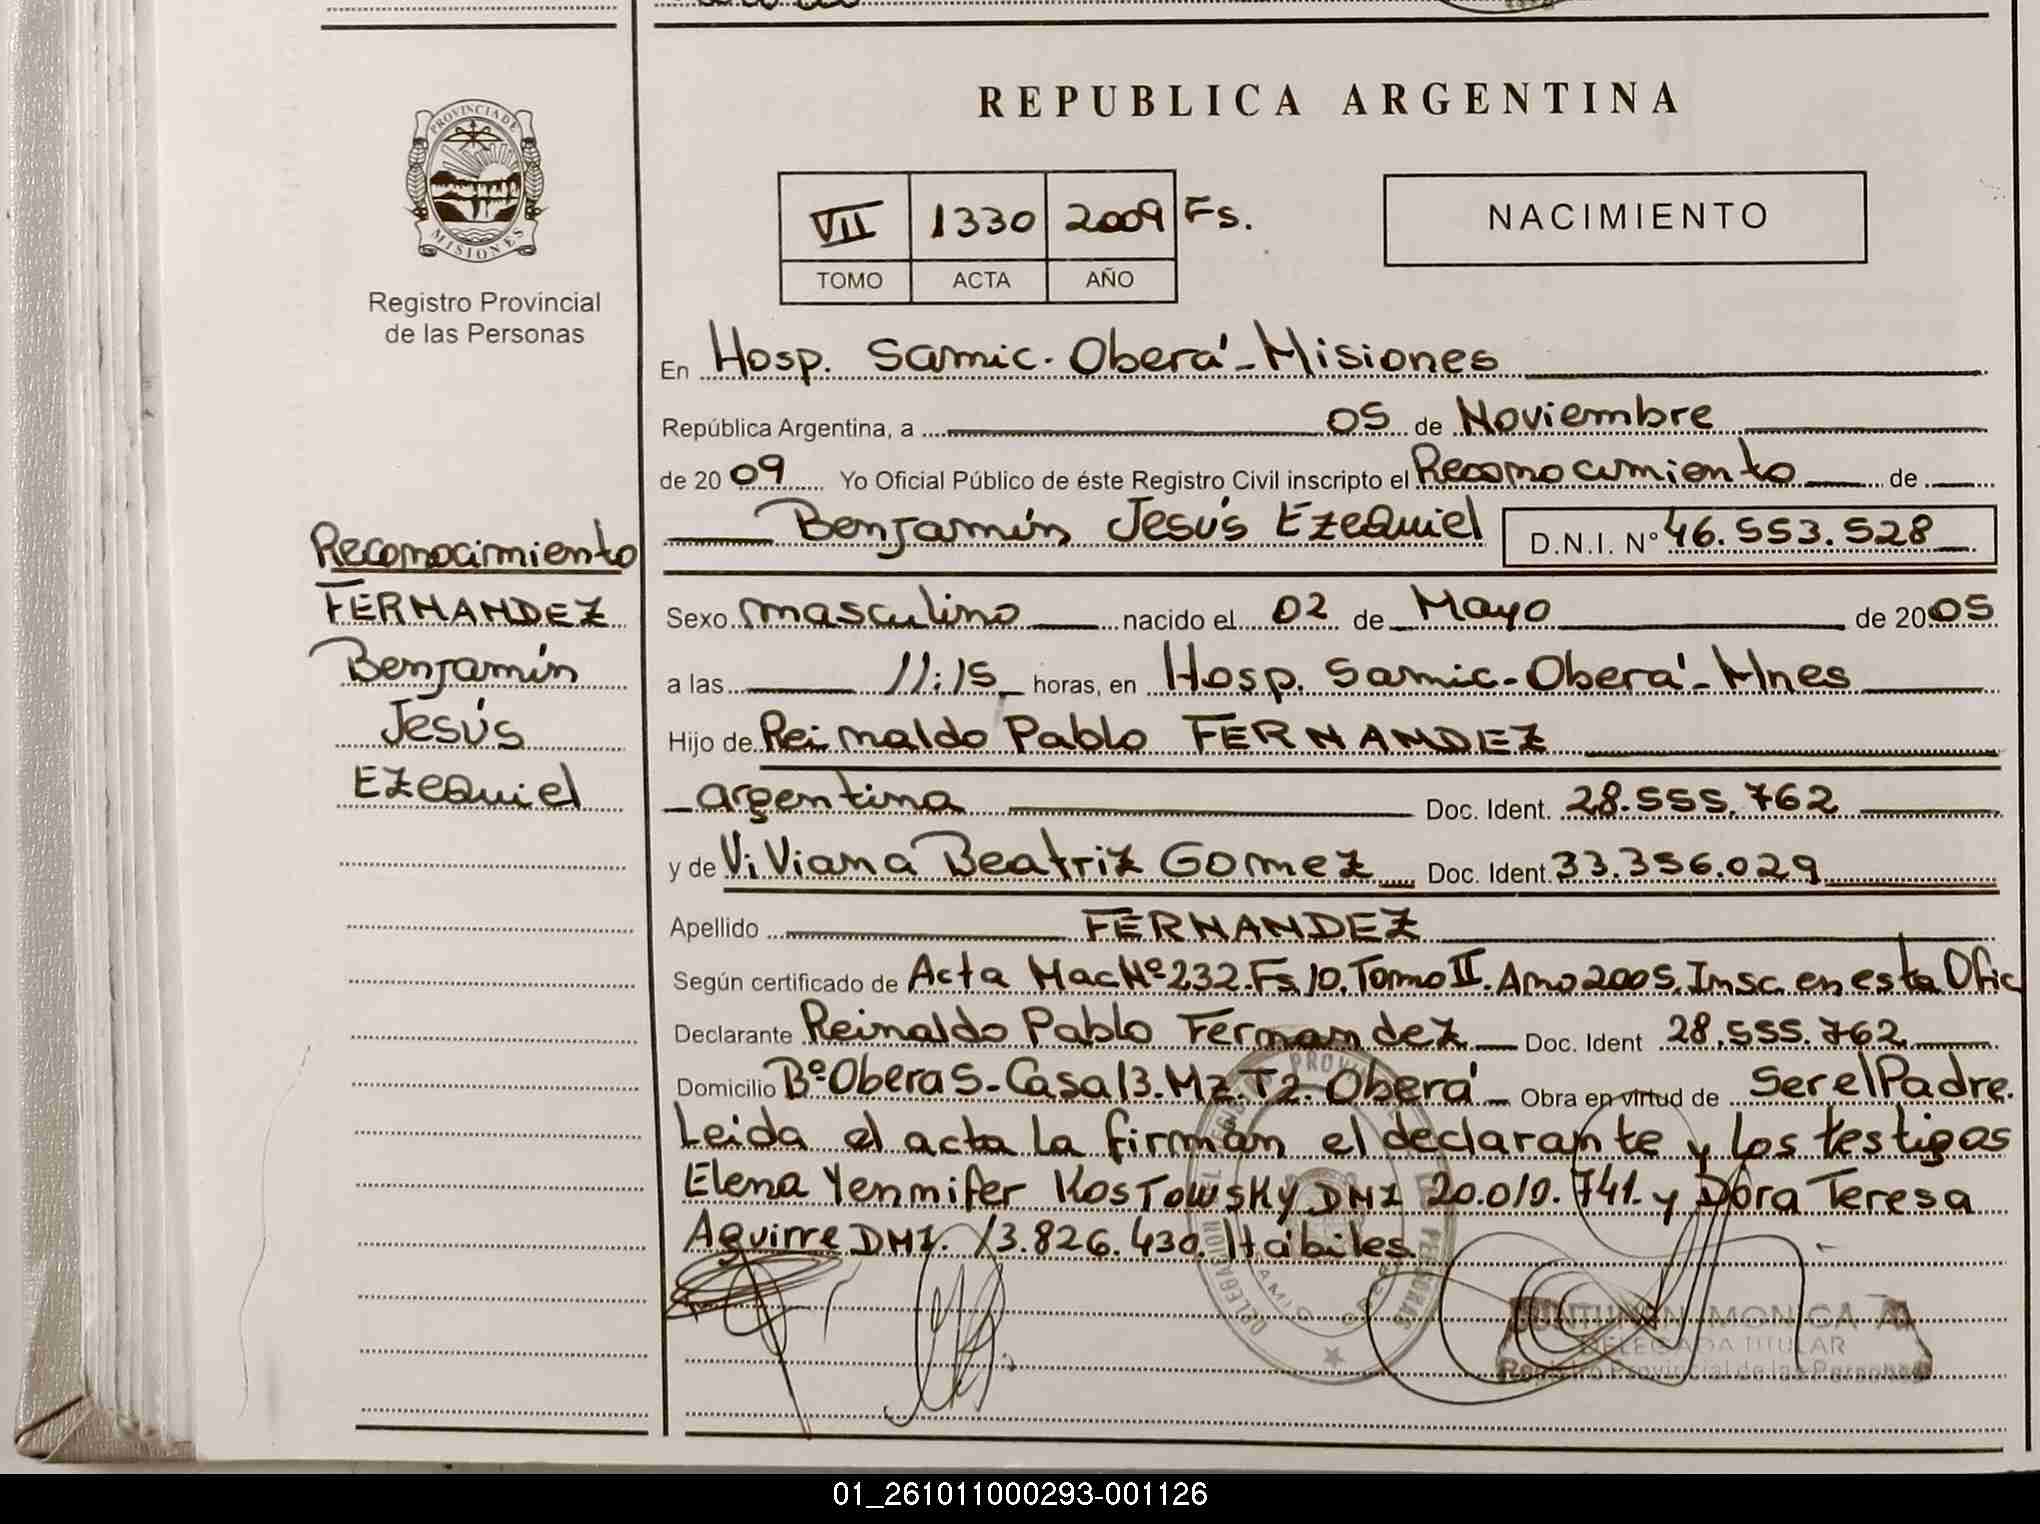 REPUBLICA ARGENTINA
PROVINCIA DE
MISIONES
Registro Provincial
de las Personas
VII 1330 2009 Fs.
TOMO ACTA AÑO
NACIMIENTO
En Hosp. Samic. Oberá - Misiones
República Argentina, a 05 de Noviembre
de 2009 Yo Oficial Público de éste Registro Civil inscripto el Reconocimiento de
Benjamín Jesús Ezequiel D.N.I. N° 46.553.528
Sexo masculino nacido el 02 de Mayo de 2005
a las 11:15 horas, en Hosp. Samic - Oberá - Mnes
Hijo de Reinaldo Pablo FERNANDEZ
argentina Doc. Ident. 28.555.762
y de Viviana Beatriz Gomez Doc. Ident. 33.356.029
Apellido FERNANDEZ
Según certificado de Acta Nac Nº 232. Fs 10. Tomo II. Año 2005. Insc. en esta Ofic
Declarante Reinaldo Pablo Fernandez Doc. Ident 28.555.762
Domicilio Bº Obera 5 - Casa 13. Mz. T2. Oberá Obra en virtud de Ser el Padre.
Leida el acta la firman el declarante y los testigos
Elena Yennifer Kostowsky DNI 20.010.741. y Dora Teresa
Aguirre DNI. 13.826.430. Hábiles.
Reconocimiento
FERNANDEZ
Benjamín
Jesús
Ezequiel
MONICA A
DELEGADA TITULAR
Registro Provincial de las Personas
01_261011000293-001126